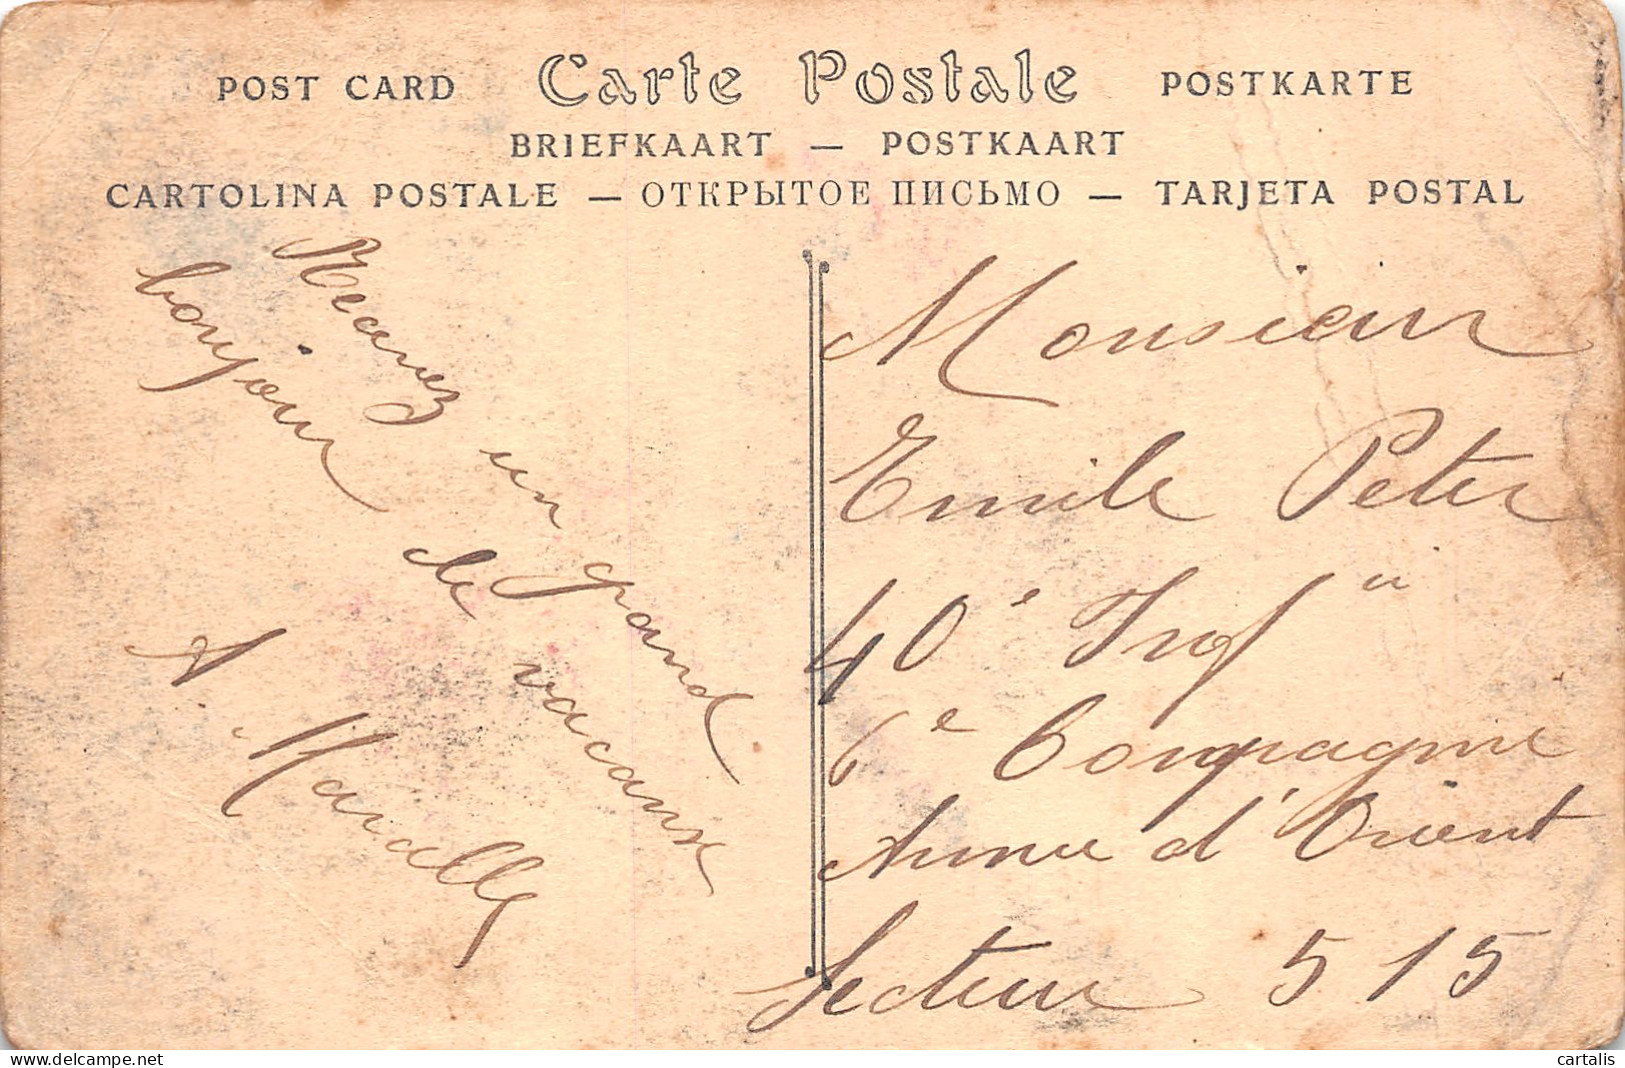 POST CARD Carte Postale POSTKARTE
BRIEFKAART — POSTKAART
CARTOLINA POSTALE — ОТКРЫТОЕ ПИСЬМО — TARJETA POSTAL
Recevez un grand
bonjour de
A.
Monsieur
Emile Peter
40e Infie
6e Compagnie
Armée d'Orient
Secteur 515
cartalis
delcampe.net